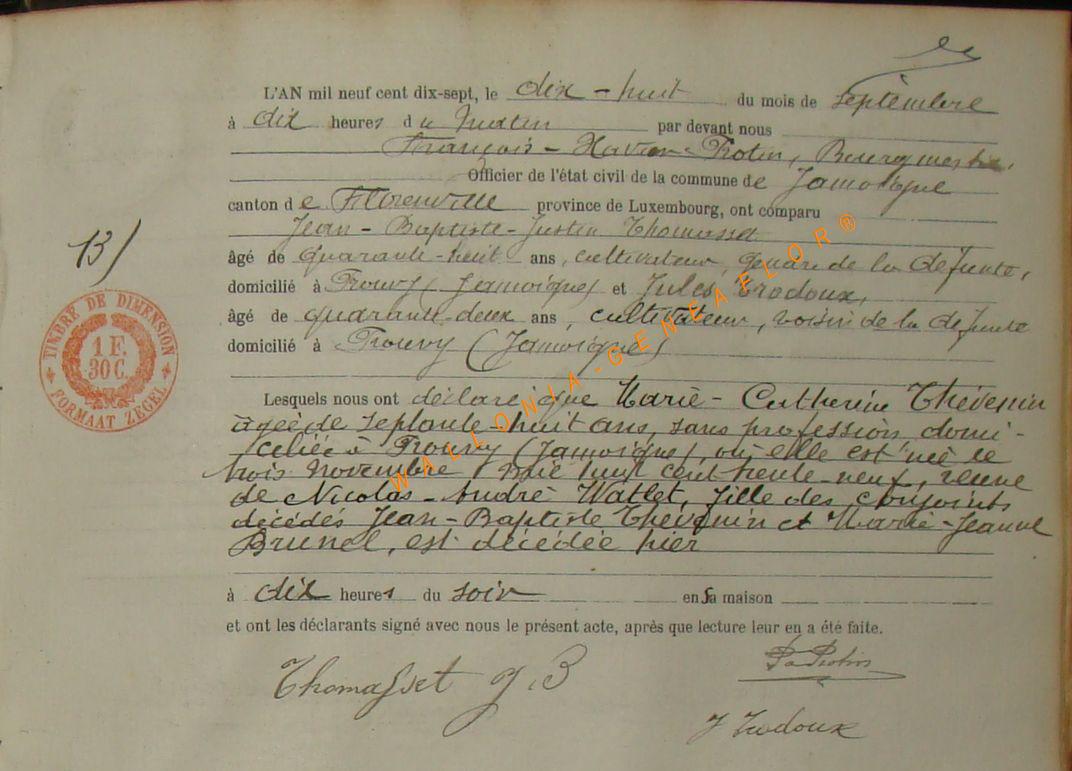 L'AN mil neuf cent dix-sept, le dix-huit du mois de septembre
à dix heures du matin par devant nous
François-Xavier Protin, Bourgmestre,
Officier de l'état civil de la commune de Jamoigne
canton de Florenville province de Luxembourg, ont comparu
Jean-Baptiste-Justin Thomasset
13/
âgé de quarante-huit ans, cultivateur, gendre de la défunte,
domicilié à Prouvy (Jamoigne) et Jules Trodoux,
âgé de quarante-deux ans, cultivateur, voisin de la défunte
domicilié à Prouvy (Jamoigne)
TIMBRE DE DIMENSION
1 F.
30 C.
FORMAAT ZEGEL
Lesquels nous ont déclaré que Marie-Catherine Thévenin
âgée de septante-huit ans, sans profession, domi-
ciliée à Prouvy (Jamoigne), où elle est née le
trois novembre mil huit cent trente-neuf, veuve
de Nicolas-André Watlet, fille des conjoints
décédés Jean-Baptiste Thévenin et Marie-Jeanne
Brunel, est décédée hier
à dix heures du soir en sa maison
et ont les déclarants signé avec nous le présent acte, après que lecture leur en a été faite.
Thomasset J.B
J Trodoux
WALLONIA-GENEAFLOR®